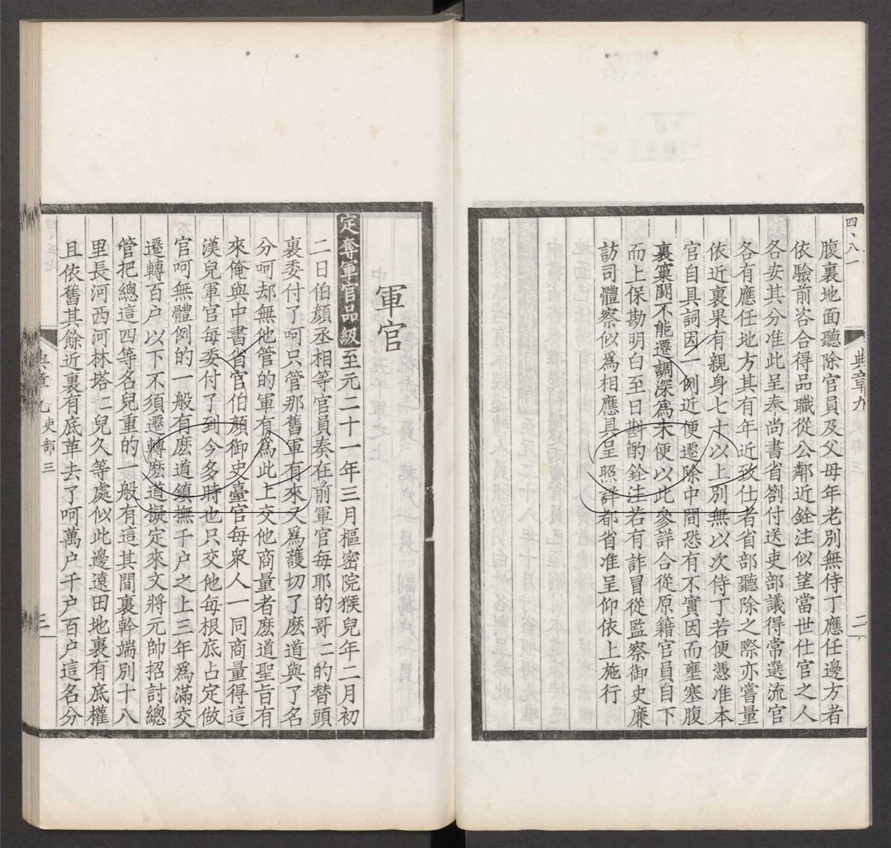 四、八一
腹裏地面聽除官員及父母年老別無侍丁應任邊方者
依驗前咨合得品職從公鄰近銓注似望當世仕官之人
各安其分准此呈奉尚書省劄付送吏部議得常選流官
各有應任地方其有年近致仕者省部聽除之際亦嘗量
依近裏果有親身七十以上別無以次侍丁若便憑准本
官自具詞因一例近便遷除中間恐有不實因而壅塞腹
裏窠闕不能遷調深爲未便以此參詳合從原籍官員自下
而上保勘明白至日斟酌銓注若有詐冒從監察御史廉
訪司體察似爲相應具呈照詳都省准呈仰依上施行
典章九 吏部三
二
軍官
定奪軍官品級至元二十一年三月樞密院猴兒年二月初
二日伯顔丞相等官員奏在前軍官每耶的哥二的替頭
裏委付了呵只管那舊軍有來又爲護切了麽道與了名
分呵却無他管的軍有爲此上交他商量者麽道聖旨有
來俺與中書省官伯顔御史臺官每衆人一同商量得這
漢兒軍官每委付了到今多時也只交他每根底占定做
官呵無體例的一般有麽道鎮撫千户之上三年爲滿交
遷轉百户以下不須遷轉麽道擬定來文將元帥招討總
管把總這四等名兒重的一般有這其間裏幹端別十八
里長河西河林塔二兒久等處似此邊遠田地裏有底權
且依舊其餘近裏有底革去了呵萬户千户百户這名分
典章九 吏部三
三